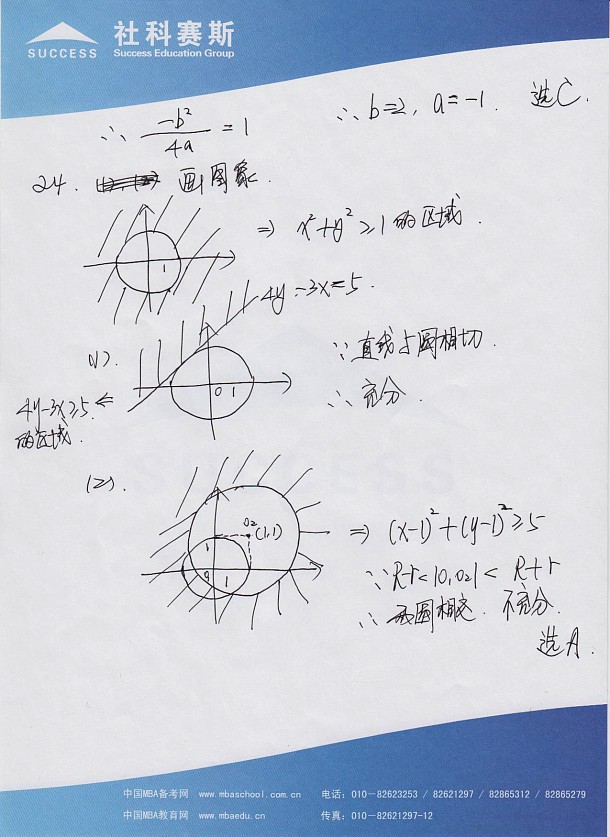 社科赛斯
SUCCESS
Success Education Group
∴ -b²/4a = 1 ∴ b=2, a=-1. 选C.
24. 画图象.
1
⇒ x²+y²≥1的区域.
4y-3x=5.
(1).
0 1
∵直线与圆相切.
∴充分.
4y-3x≥5. ⇐
的区域.
(2).
O2 (1,1)
1
0 1
⇒ (x-1)²+(y-1)²≥5
∵R-r<|O1O2|<R+r
∴圆相交. 不充分.
选A.
SUCCESS
中国MBA备考网 www.mbaschool.com.cn 电话：010－82623253 / 82621297 / 82865312 / 82865279
中国MBA教育网 www.mbaedu.cn 传真：010－82621297-12